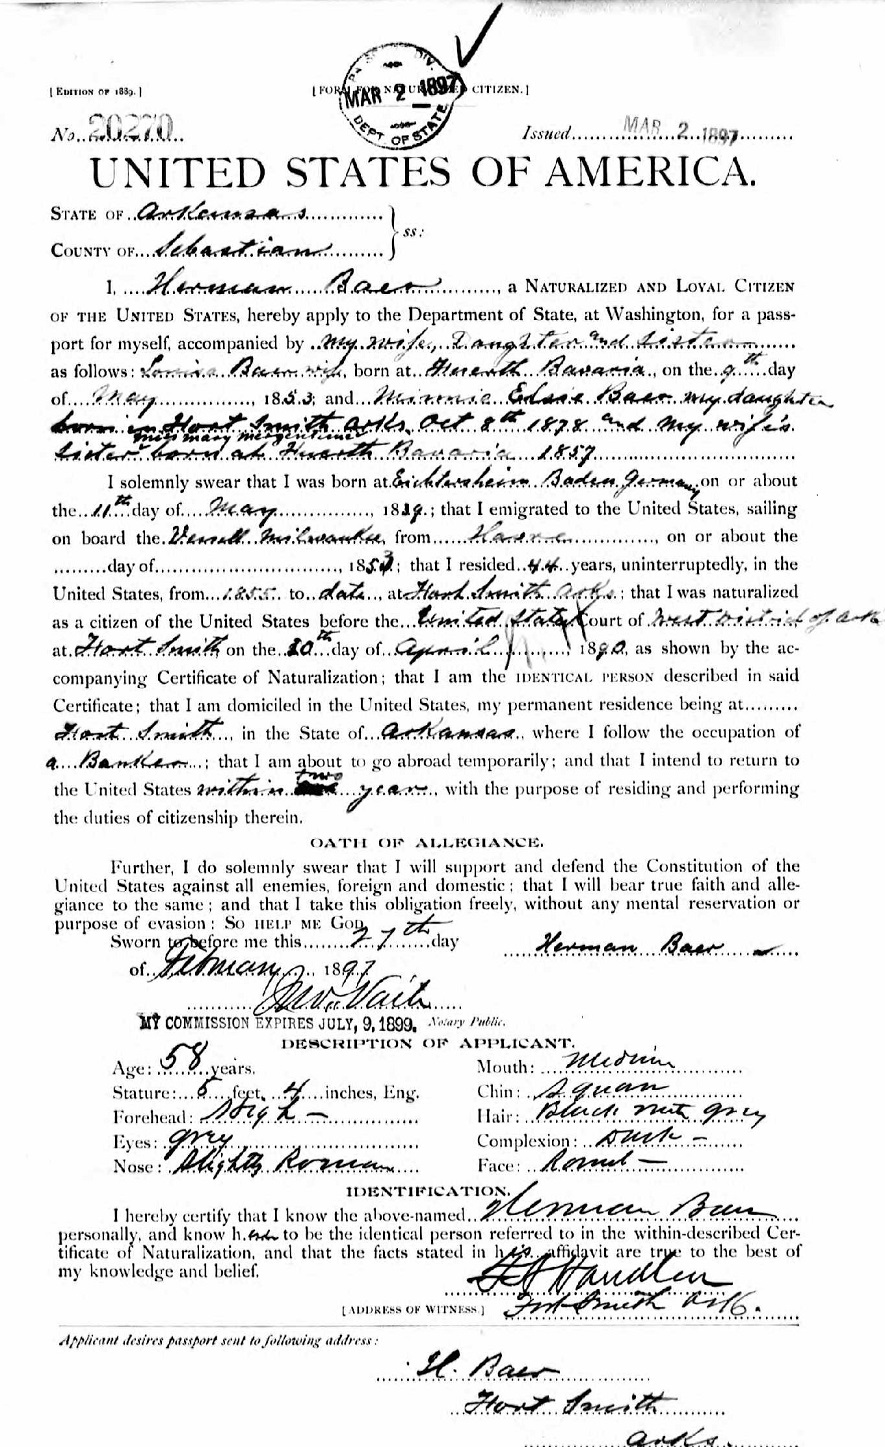 [ EDITION OF 1889. ]
[ FORM FOR NATURALIZED CITIZEN. ]
MAR 2 1897
DEPT. OF STATE.
No. 20270
Issued MAR 2 1897
UNITED STATES OF AMERICA.
STATE OF Arkansas
COUNTY OF Sebastian
ss:
I, Herman Baer, a NATURALIZED AND LOYAL CITIZEN
OF THE UNITED STATES, hereby apply to the Department of State, at Washington, for a pass-
port for myself, accompanied by my wife, Daughter and sister
as follows: Louisa Baer wife, born at Huerth Bavaria, on the 9th day
of May, 1853; and Minnie Elsie Baer my daughter
born in Fort Smith Arks Oct 8th 1878 and my wife's
miss mary
sister born at Huerth Bavaria 1857
I solemnly swear that I was born at Eichtersheim Baden Germany on or about
the 11th day of May, 1839; that I emigrated to the United States, sailing
on board the Vessell Milwaukee, from, on or about the
day of, 1853; that I resided 44 years, uninterruptedly, in the
United States, from 1855 to date, at Fort Smith Arks; that I was naturalized
as a citizen of the United States before the United States Court of West District of Ark
at Fort Smith on the 20th day of April, 1890, as shown by the ac-
companying Certificate of Naturalization; that I am the IDENTICAL PERSON described in said
Certificate; that I am domiciled in the United States, my permanent residence being at
Fort Smith, in the State of Arkansas, where I follow the occupation of
a Banker; that I am about to go abroad temporarily; and that I intend to return to
the United States within two year, with the purpose of residing and performing
the duties of citizenship therein.
OATH OF ALLEGIANCE.
Further, I do solemnly swear that I will support and defend the Constitution of the
United States against all enemies, foreign and domestic; that I will bear true faith and alle-
giance to the same; and that I take this obligation freely, without any mental reservation or
purpose of evasion: SO HELP ME GOD.
Sworn to before me this 27th day
Herman Baer
of February, 1897
MY COMMISSION EXPIRES JULY, 9, 1899. Notary Public.
DESCRIPTION OF APPLICANT.
Age: 58 years.
Mouth: Medium
Stature: 5 feet, 4 inches, Eng.
Chin: Square
Forehead: High –
Hair: Black mit grey
Eyes: grey
Complexion: Dark –
Nose: Slightly Roman
Face: Round –
IDENTIFICATION.
I hereby certify that I know the above-named Herman Baer
personally, and know h to be the identical person referred to in the within-described Cer-
tificate of Naturalization, and that the facts stated in his affidavit are true to the best of
my knowledge and belief.
Handlin
[ ADDRESS OF WITNESS ] Fort Smith Ark.
Applicant desires passport sent to following address:
H. Baer
Fort Smith
Arks.